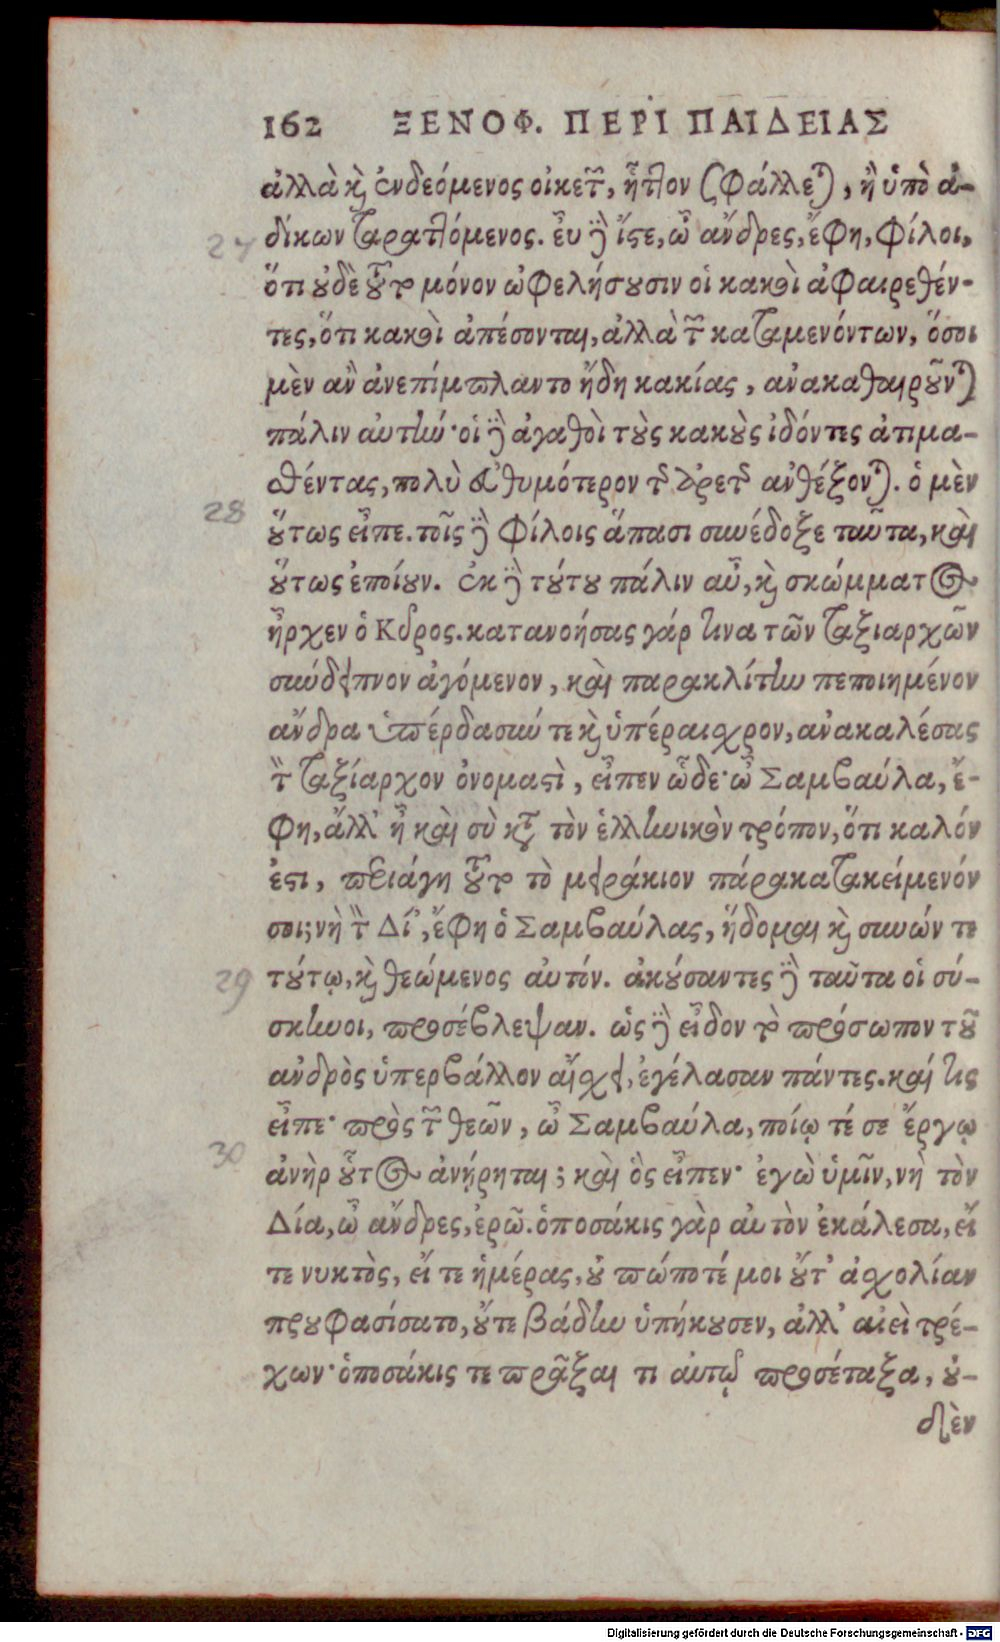 162 ΞΕΝΟΦ. ΠΕΡΙ ΠΑΙΔΕΙΑΣ
ἀλλὰ καὶ ἐνδεόμενος οἰκετῶν, ἧττον σφάλλεται, ἢ ὑπὸ ἀ-
27 δίκων ταραττόμενος. εὖ δὲ ἴστε, ὦ ἄνδρες, ἔφη, φίλοι,
ὅτι οὐδὲ τοῦτο μόνον ὠφελήσουσιν οἱ κακοὶ ἀφαιρεθέν-
τες, ὅτι κακοὶ ἀπέσονται, ἀλλὰ τῶν καταμενόντων, ὅσοι
μὲν ἂν ἀνεπίμπλαντο ἤδη κακίας, ἀνακαθαιροῦνται
πάλιν αὐτήν· οἱ δὲ ἀγαθοὶ τοὺς κακοὺς ἰδόντες ἀτιμα-
σθέντας, πολὺ εὐθυμότερον τῆς ἀρετῆς ἀνθέξονται. ὁ μὲν
28 οὕτως εἶπε. τοῖς δὲ φίλοις ἅπασι συνέδοξε ταῦτα, καὶ
οὕτως ἐποίουν. ἐκ δὲ τούτου πάλιν αὖ, καὶ σκώμματος
ἦρχεν ὁ Κῦρος. κατανοήσας γάρ τινα τῶν ταξιαρχῶν
σύνδειπνον ἀγόμενον, καὶ παρακλίτην πεποιημένον
ἄνδρα ὑπέρδασύν τε καὶ ὑπέραισχρον, ἀνακαλέσας
τὸν ταξίαρχον ὀνομαστὶ, εἶπεν ὧδε· ὦ Σαμβαύλα, ἔ-
φη, ἀλλ' ἦ καὶ σὺ κατὰ τὸν ἑλληνικὸν τρόπον, ὅτι καλόν
ἐστι, περιάγῃ τοῦτο τὸ μειράκιον πάρακατακείμενόν
σοι; νὴ τὸν Δί', ἔφη ὁ Σαμβαύλας, ἥδομαι καὶ συνών τε
29 τούτῳ, καὶ θεώμενος αὐτόν. ἀκούσαντες δὲ ταῦτα οἱ σύ-
σκηνοι, προσέβλεψαν. ὡς δὲ εἶδον τὸ πρόσωπον τοῦ
ἀνδρὸς ὑπερβάλλον αἴσχει, ἐγέλασαν πάντες. καί τις
εἶπε· πρὸς τῶν θεῶν, ὦ Σαμβαύλα, ποίῳ τέ σε ἔργῳ
30 ἀνὴρ οὗτος ἀνῄρηται; καὶ ὃς εἶπεν· ἐγὼ ὑμῖν, νὴ τὸν
Δία, ὦ ἄνδρες, ἐρῶ. ὁποσάκις γὰρ αὐτὸν ἐκάλεσα, εἴ
τε νυκτὸς, εἴ τε ἡμέρας, οὐ πώποτέ μοι οὔτ' ἀσχολίαν
προυφασίσατο, οὔτε βάδην ὑπήκουσεν, ἀλλ' αἰεὶ τρέ-
χων· ὁποσάκις τε πρᾶξαι τι αὐτῷ προσέταξα, οὐ-
δὲν
Digitalisierung gefördert durch die Deutsche Forschungsgemeinschaft - DFG